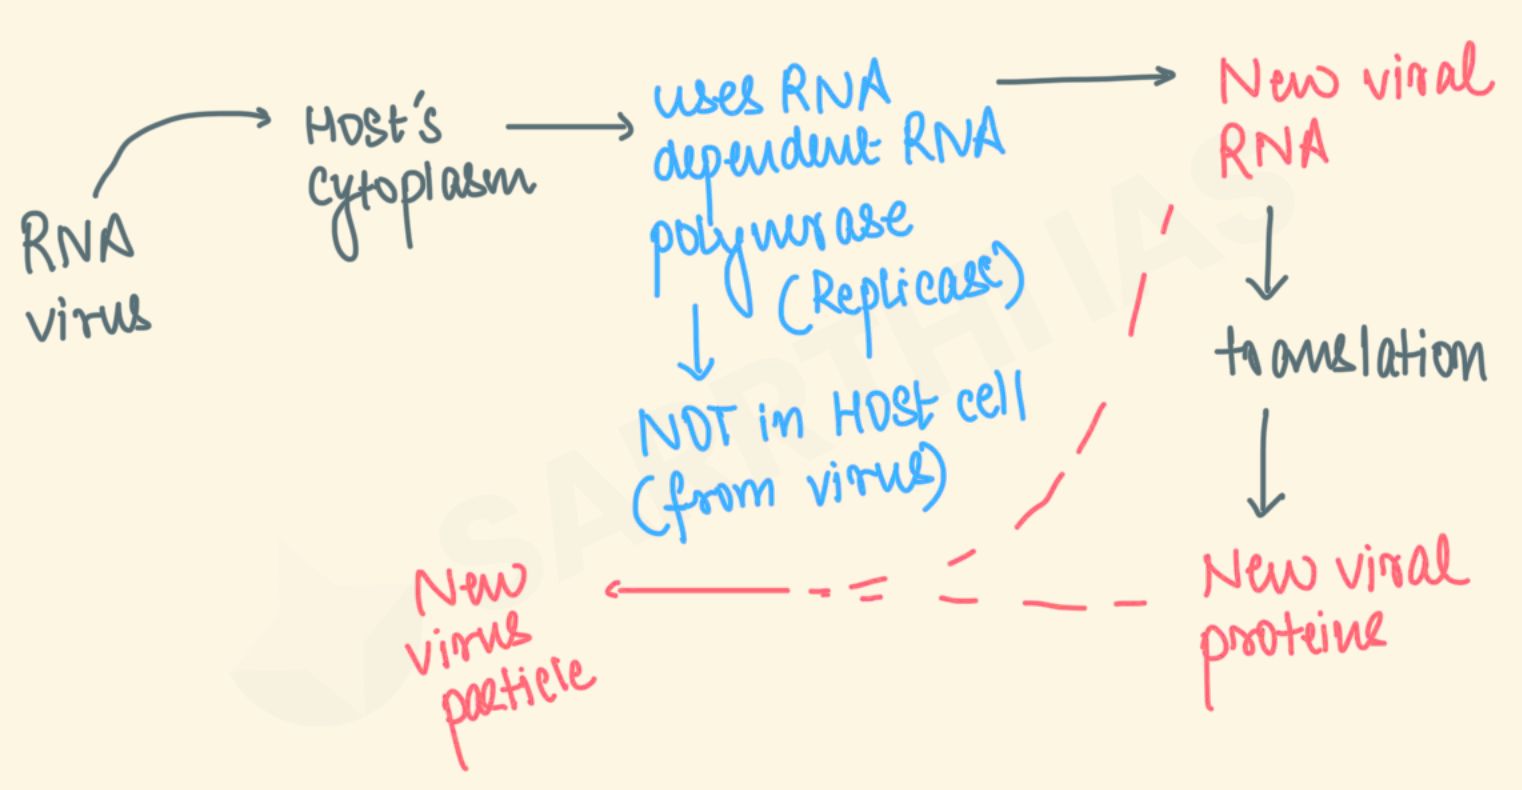 RNA
virus
Host's
cytoplasm
uses RNA
dependent RNA
polymerase
(Replicase)
NOT in Host cell
(from virus)
New viral
RNA
translation
New viral
proteins
New
virus
particle
SARRTHI IAS